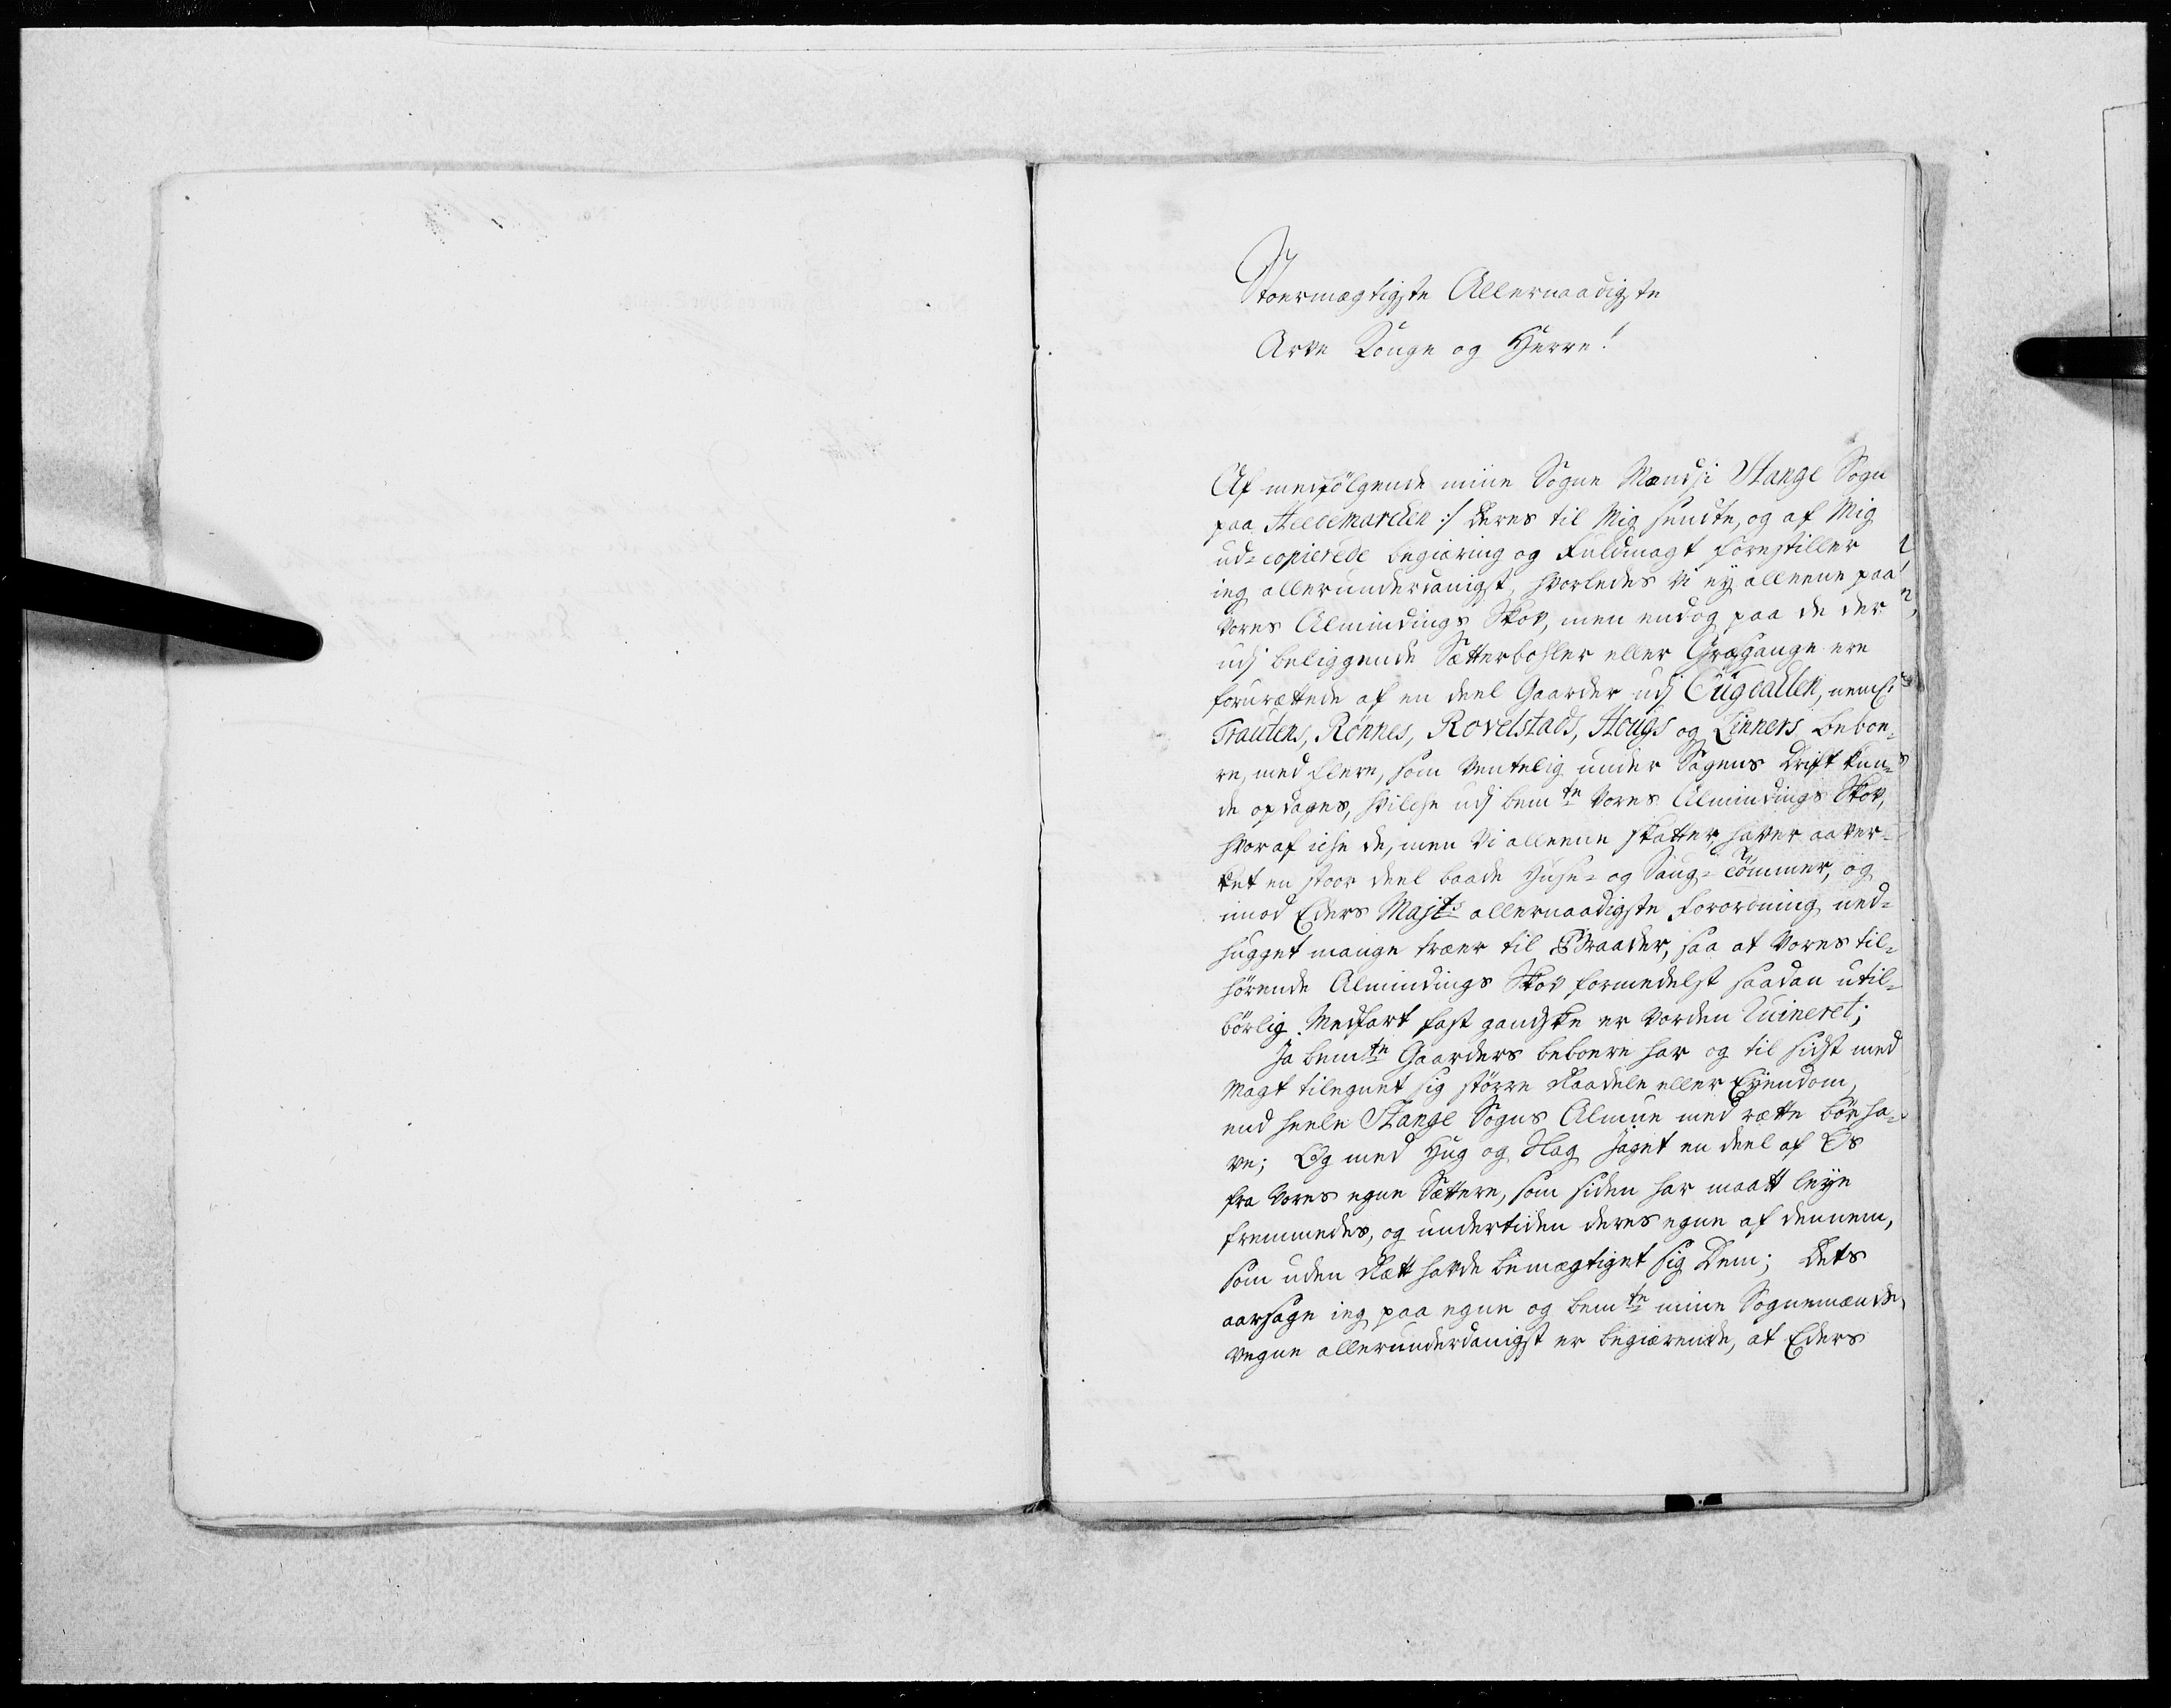 Stoermægtigste Allernaadigste
Arve Konge og Herre!
Af medfølgende mine Sogne Mænds /: i Stange Sogn
paa Hedemarcken :/ deres til Mig sendte, og af Mig
ud-copierede begiæring og Fuldmagt forestiller
ieg allerunderdanigst, hvorledes Vi ey alleene paa
Vores Almindings Skov, men endog paa de der
udj beliggende Sætterbohler eller Græsgange ere
forurættede af en deel Gaarder udj
Trautens, Rönnes, Rovelstads, Hougs og Linners beboe-
re, med flere, som Ventelig under Sagens Drift kun-
de opdages, hvilche udj bem.te Vores Almindings Skov,
hvoraf iche de, men Vi alleene skatter, haver aaver-
ket en stoor deel baade Huse- og Saug-Tömmer, og
imod Eders Maj.ts allernaadigste Forordning ned-
hugget mange træer til Braader, saa at Vores til-
hørende Almindings Skov formedelst saadan util-
børlig Medfart fast gandske er vorden Ruineret;
Ja bem.te Gaarders beboere har og til sidst med
Magt tilegnet sig større Raadele eller Eyendom,
end heele Stange Sogns Almue med rætte bør ha-
ve; Og med Hug og Slag Jaget en deel af Os
fra Vores egne Sættere, som siden har maatt leye
fremmedes, og undertiden deres egne af dennem,
som uden Rætt havde bemægtiget sig Dem; Dets
aarsage ieg paa egne og bem.te mine Sognemænds
vegne allerunderdanigst er begiærende, at Eders